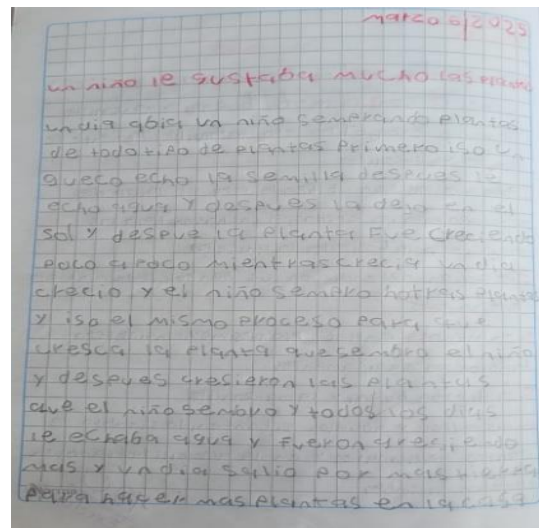 marzo 6/2025
un niño le gustaba mucho las plantas
un dia abia un niño sembrando plantas
de todo tipo de plantas primero iso un
gueco echo la semilla despues le
echo agua y despues la dejo en el
sol y despue la planta fue creciendo
poco a poco mientras crecia un dia
crecio y el niño sembro hotras plantas
y iso el mismo proceso para que
cresca la planta que sembro el niño
y despues cresieron las plantas
que el niño sembro y todos los dias
le echaba agua y fueron creciendo
mas y un dia salio por mas tierra
para hacer mas plantas en la casa